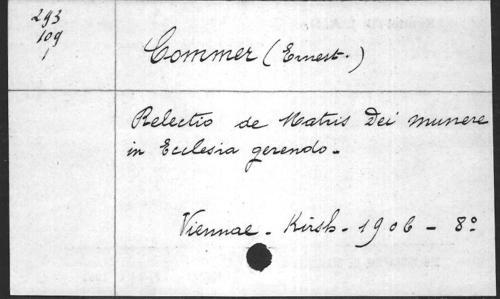 293
109
1
Commer (Ernest.)
Relectio de Matris Dei munere
in Ecclesia gerendo.
Viennae - Kirsh - 1906 - 8º